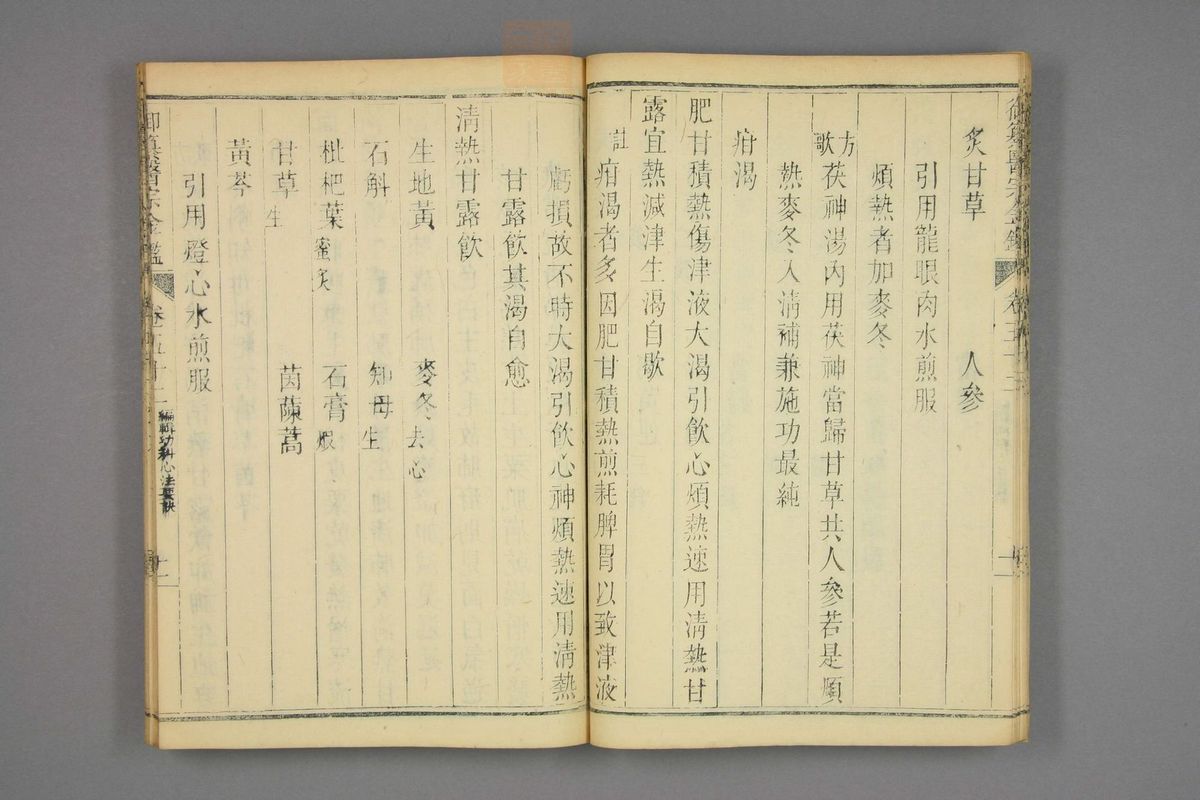 炙甘草 人參
引用龍眼肉水煎服
煩熱者加麥冬
方歌 茯神湯內用茯神當歸甘草共人參若是煩
熱麥冬入清補兼施功最純
疳渴
肥甘積熱傷津液大渴引飲心煩熱速用清熱甘
露宜熱減津生渴自歇
註 疳渴者多因肥甘積熱煎耗脾胃以致津液
虧損故不時大渴引飲心神煩熱速用清熱
甘露飲其渴自愈
清熱甘露飲
生地黃 麥冬去心
石斛 知母生
枇杷葉蜜炙 石膏煅
甘草生 茵蔯蒿
黃芩
引用燈心水煎服
御纂醫宗金鑑 卷五十二 編輯幼科心法要訣 十一